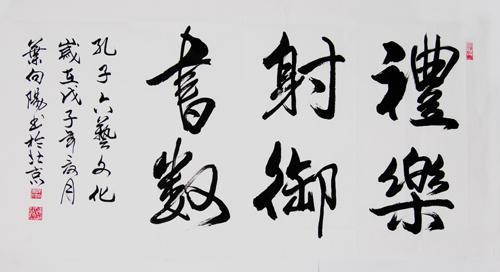 禮樂
射御
書数
孔子六藝文化
歲在戊子年
葉向陽书於北京